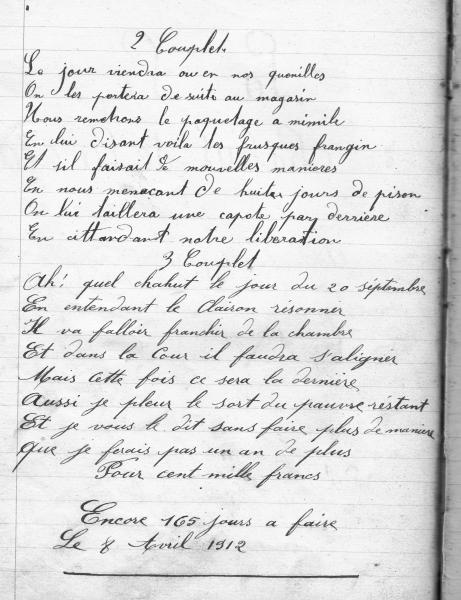 2 Couplet
Le jour viendra ou en nos guenilles
On les portera de suite au magasin
Nous remetrons le paquetage a mimile
En lui disant voila tes frusques frangin
Et sil faisait de nouvelles manieres
En nous menacant de huits jours de pison
On lui taillera une capote par derriere
En attandant notre liberation
3 Couplet
Ah! quel chahut le jour du 20 séptembre
En entendant le Clairon résonner
Il va falloir franchir de la chambre
Et dans la Cour il faudra s'aligner
Mais cette fois ce sera la dernière
Aussi je pleur le sort du pauvre réstant
Et je vous le dit sans faire plus de maniere
Que je ferais pas un an de plus
Pour cent mille francs
Encore 165 jours a faire
Le 8 Avril 1912